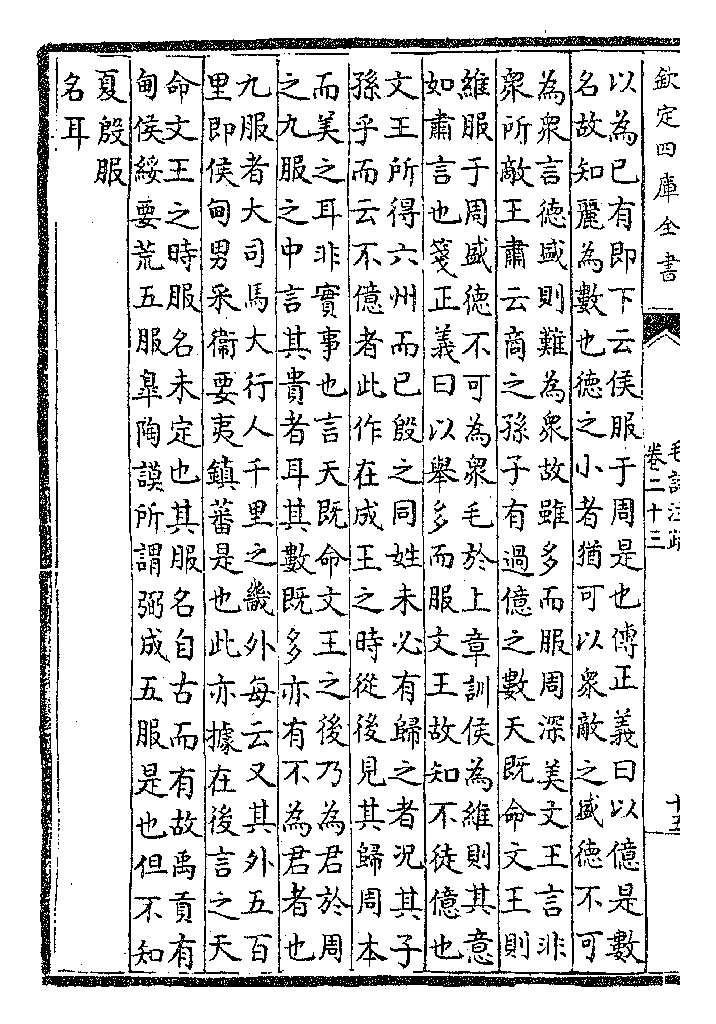 欽定四庫全書
毛詩注疏
卷二十三
十五
以為已有即下云侯服于周是也傳正義曰以億是數
名故知麗為數也德之小者猶可以衆敵之盛德不可
為衆言德盛則難為衆故雖多而服周深美文王言非
衆所敵王肅云商之孫子有過億之數天既命文王則
維服于周盛德不可為衆毛於上章訓侯為維則其意
如肅言也箋正義曰以舉多而服文王故知不徒億也
文王所得六州而已殷之同姓未必有歸之者況其子
孫乎而云不億者此作在成王之時從後見其歸周本
而美之耳非實事也言天既命文王之後乃為君於周
之九服之中言其貴者耳其數既多亦有不為君者也
九服者大司馬大行人千里之畿外每云又其外五百
里即侯甸男采衞要夷鎮蕃是也此亦據在後言之天
命文王之時服名未定也其服名自古而有故禹貢有
甸侯綏要荒五服臯陶謨所謂弼成五服是也但不知
夏殷服
名耳